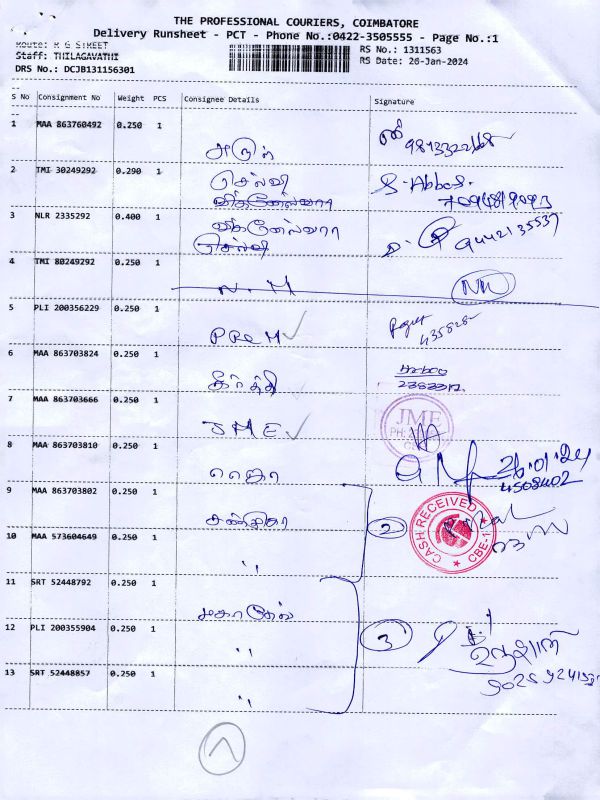 THE PROFESSIONAL COURIERS, COIMBATORE
Delivery Runsheet - PCT - Phone No.:0422-3505555 - Page No.:1
Route: R G STREET
RS No.: 1311563
Staff: THILAGAVATHI
RS Date: 26-Jan-2024
DRS No.: DCJB131156301
S No Consignment No Weight PCS Consignee Details Signature
1 MAA 863760492 0.250 1
அருள்
2 TMI 30249292 0.290 1 செல்வி S. Abbas.
விக்னேஸ்வரா
3 NLR 2335292 0.400 1 விக்னேஸ்வரா 9442135537
செல்வி
4 TMI 80249292 0.250 1
N.M NM
5 PLI 200356229 0.250 1
PREM
6 MAA 863703824 0.250 1
கீர்த்தி
7 MAA 863703666 0.250 1
JME JME
8 MAA 863703810 0.250 1
26.01.24
4508402
9 MAA 863703802 0.250 1
2 CASH RECEIVED CBE-1
10 MAA 573604649 0.250 1
"
11 SRT 52448792 0.250 1
12 PLI 200355904 0.250 1 3
"
13 SRT 52448857 0.250 1
"